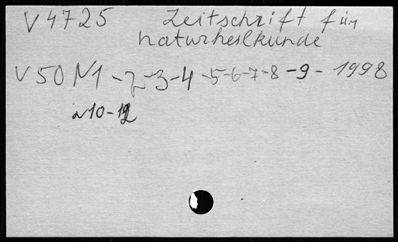 V 4725 Zeitschrift für
naturheilkunde
V50 N1-2-3-4-5-6-7-8-9-1998
N10-12